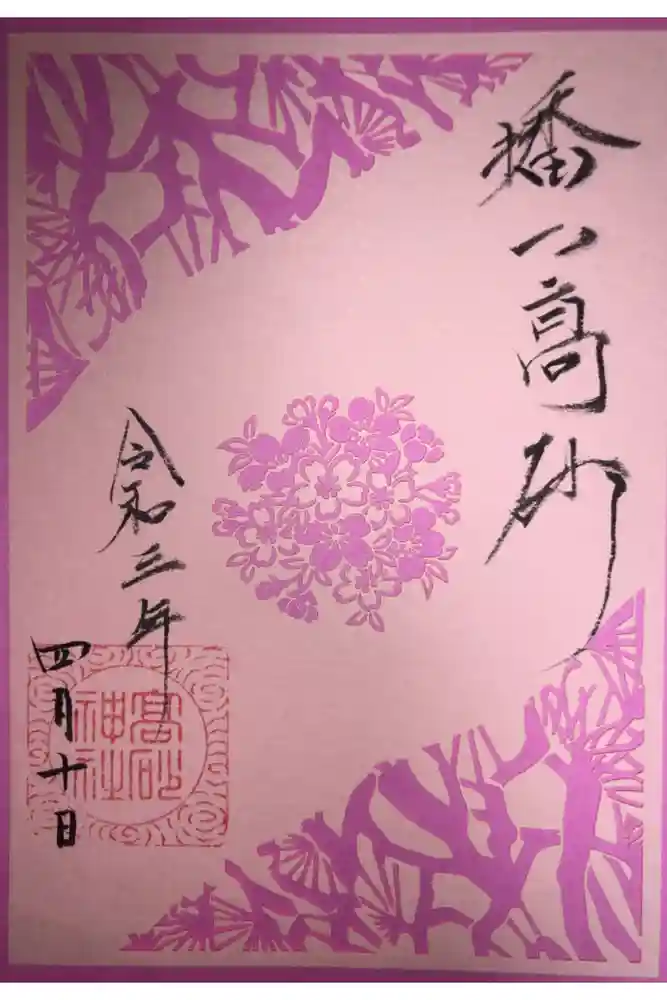 播ノ高砂
令和三年
四月十日
高砂
神社